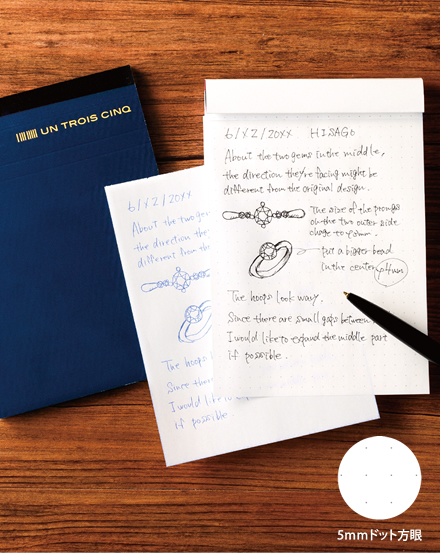 UN TROIS CINQ
6/X2/20XX HISAGO
About the two gems in the middle,
the direction they're facing might be
different from the original design.
The size of the prongs
on the two outer side
chage to φ2mm.
put a bigger bead
in the center φ4mm
The hoops look wavy.
Since there are small gaps between
I would like to expand the middle part
if possible.
6/X2/20XX
About the two gems
the direction the
different from th
The hoops
Since there
I would like to e
if possible.
5mmドット方眼